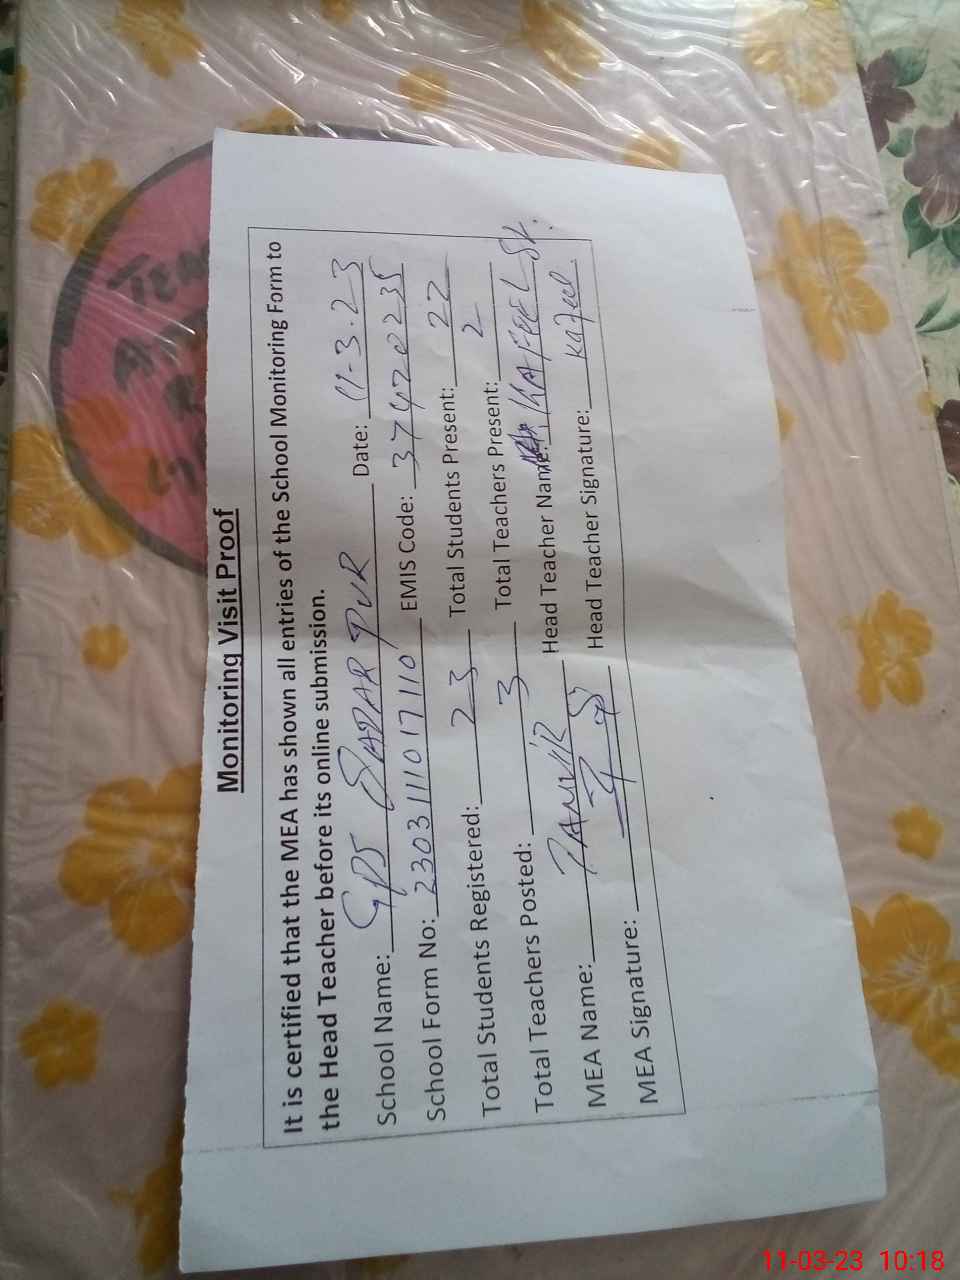 Monitoring Visit Proof
It is certified that the MEA has shown all entries of the School Monitoring Form to
the Head Teacher before its online submission.
School Name: GPS SADAR PUR Date: 11-3-23
School Form No: 2303111017110 EMIS Code: 37470235
Total Students Registered: 23 Total Students Present: 22
Total Teachers Posted: 3 Total Teachers Present: 2
MEA Name: TANVIR Head Teacher Name: KAFEEL
MEA Signature: Head Teacher Signature: Kafeel
11-03-23 10:18